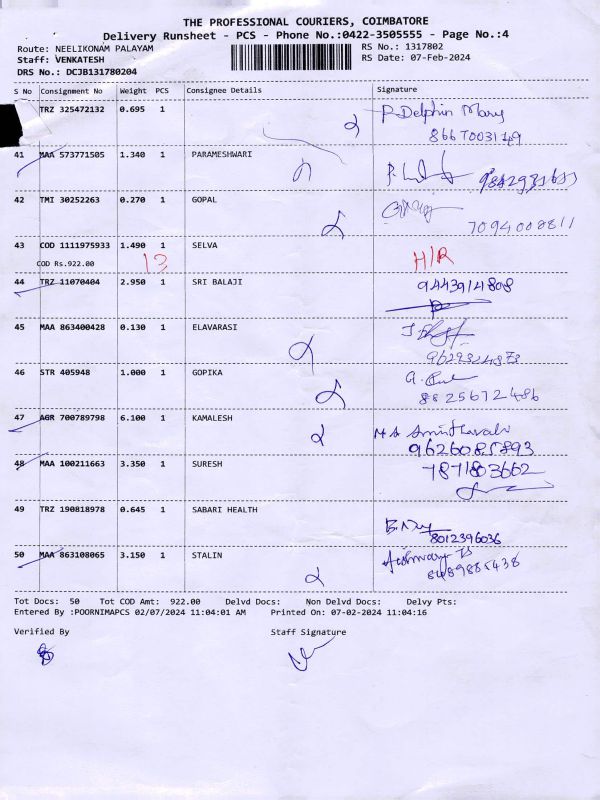 THE PROFESSIONAL COURIERS, COIMBATORE
Delivery Runsheet - PCS - Phone No.:0422-3505555 - Page No.:4
Route: NEELIKONAM PALAYAM RS No.: 1317802
Staff: VENKATESH RS Date: 07-Feb-2024
DRS No.: DCJB131780204
S No Consignment No Weight PCS Consignee Details Signature
TRZ 325472132 0.695 1 P. Delphin Mary
8667003149
41 MAA 573771505 1.340 1 PARAMESHWARI
42 TMI 30252263 0.270 1 GOPAL
7094008811
43 COD 1111975933 1.490 1 SELVA H/R
COD Rs.922.00 13
44 TRZ 11070404 2.950 1 SRI BALAJI 9443914808
45 MAA 863400428 0.130 1 ELAVARASI
46 STR 405948 1.000 1 GOPIKA
8825672486
47 AGR 700789798 6.100 1 KAMALESH
9626085893
48 MAA 100211663 3.350 1 SURESH 7871803662
49 TRZ 190818978 0.645 1 SABARI HEALTH
8012396036
50 MAA 863108065 3.150 1 STALIN
8489885438
Tot Docs: 50 Tot COD Amt: 922.00 Delvd Docs: Non Delvd Docs: Delvy Pts:
Entered By :POORNIMAPCS 02/07/2024 11:04:01 AM Printed On: 07-02-2024 11:04:16
Verified By Staff Signature